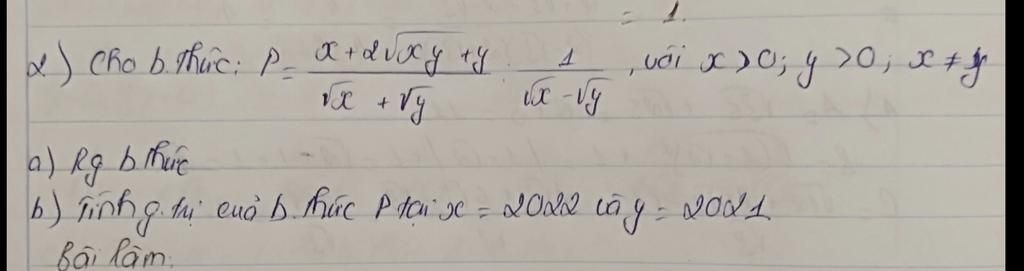 = 1.
2) Cho b.thức: P = \frac{x+2\sqrt{xy}+y}{\sqrt{x}+\sqrt{y}} . \frac{1}{\sqrt{x}-\sqrt{y}}, với x>0; y>0; x≠y
a) Rg b thức
b) Tính g.trị của b.thức P tại x = 2022 và y = 2021
Bài làm: